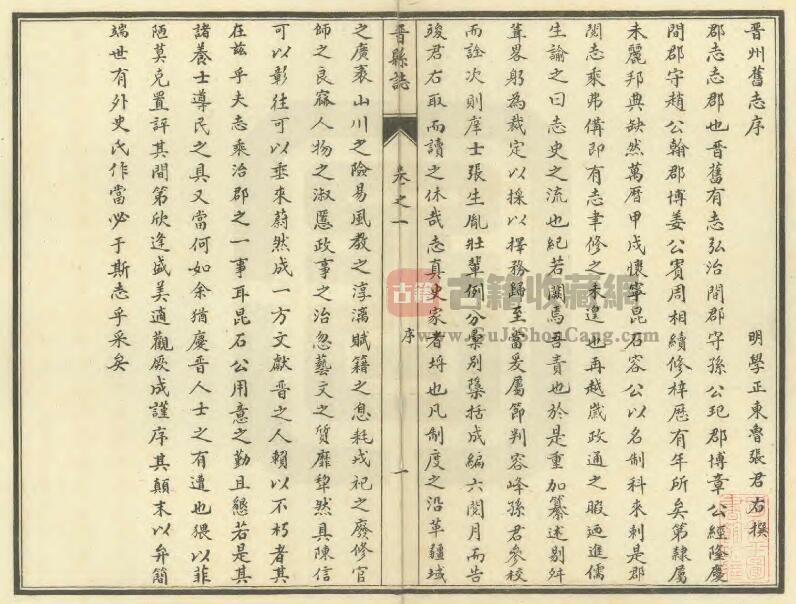 晉州舊志序
明學正東魯張君右撰
郡志志郡也晉舊有志弘治間郡守孫公玘郡博章公經隆慶
間郡守趙公翰郡博姜公賓周相續修梓歷有年所矣第隸屬
未麗邦典缺然萬曆甲戌懷寧昆石容公以名制科來刺是郡
閱志乘弗備即有志聿修之未遑也再越歲政通之暇迺進儒
生諭之曰志史之流也紀若闕焉吾責也於是重加纂述剔舛
葺畧躬為裁定以採以擇務歸至當爰屬節判容峰孫君參校
而詮次則庠士張生胤壯輩例分彙別櫽括成編六閱月而告
竣君右取而讀之休哉志真史家者埒也凡制度之沿革疆域
晉縣誌
卷之一
序
一
之廣袤山川之險易風教之淳漓賦籍之息耗戎祀之廢修官
師之良寢人物之淑慝政事之治忽藝文之質靡犁然具陳信
可以彰往可以垂來蔚然成一方文獻晉之人賴以不朽者其
在茲乎夫志乘治郡之一事耳昆石公用意之勤且懇若是其
諸養士導民之具又當何如余猶慶晉人士之有遭也猥以菲
陋莫克置評其間第欣逢盛美適觀厥成謹序其顛末以弁簡
端世有外史氏作當必于斯志乎采矣
古籍
古籍收藏網
www.GuJiShouCang.com